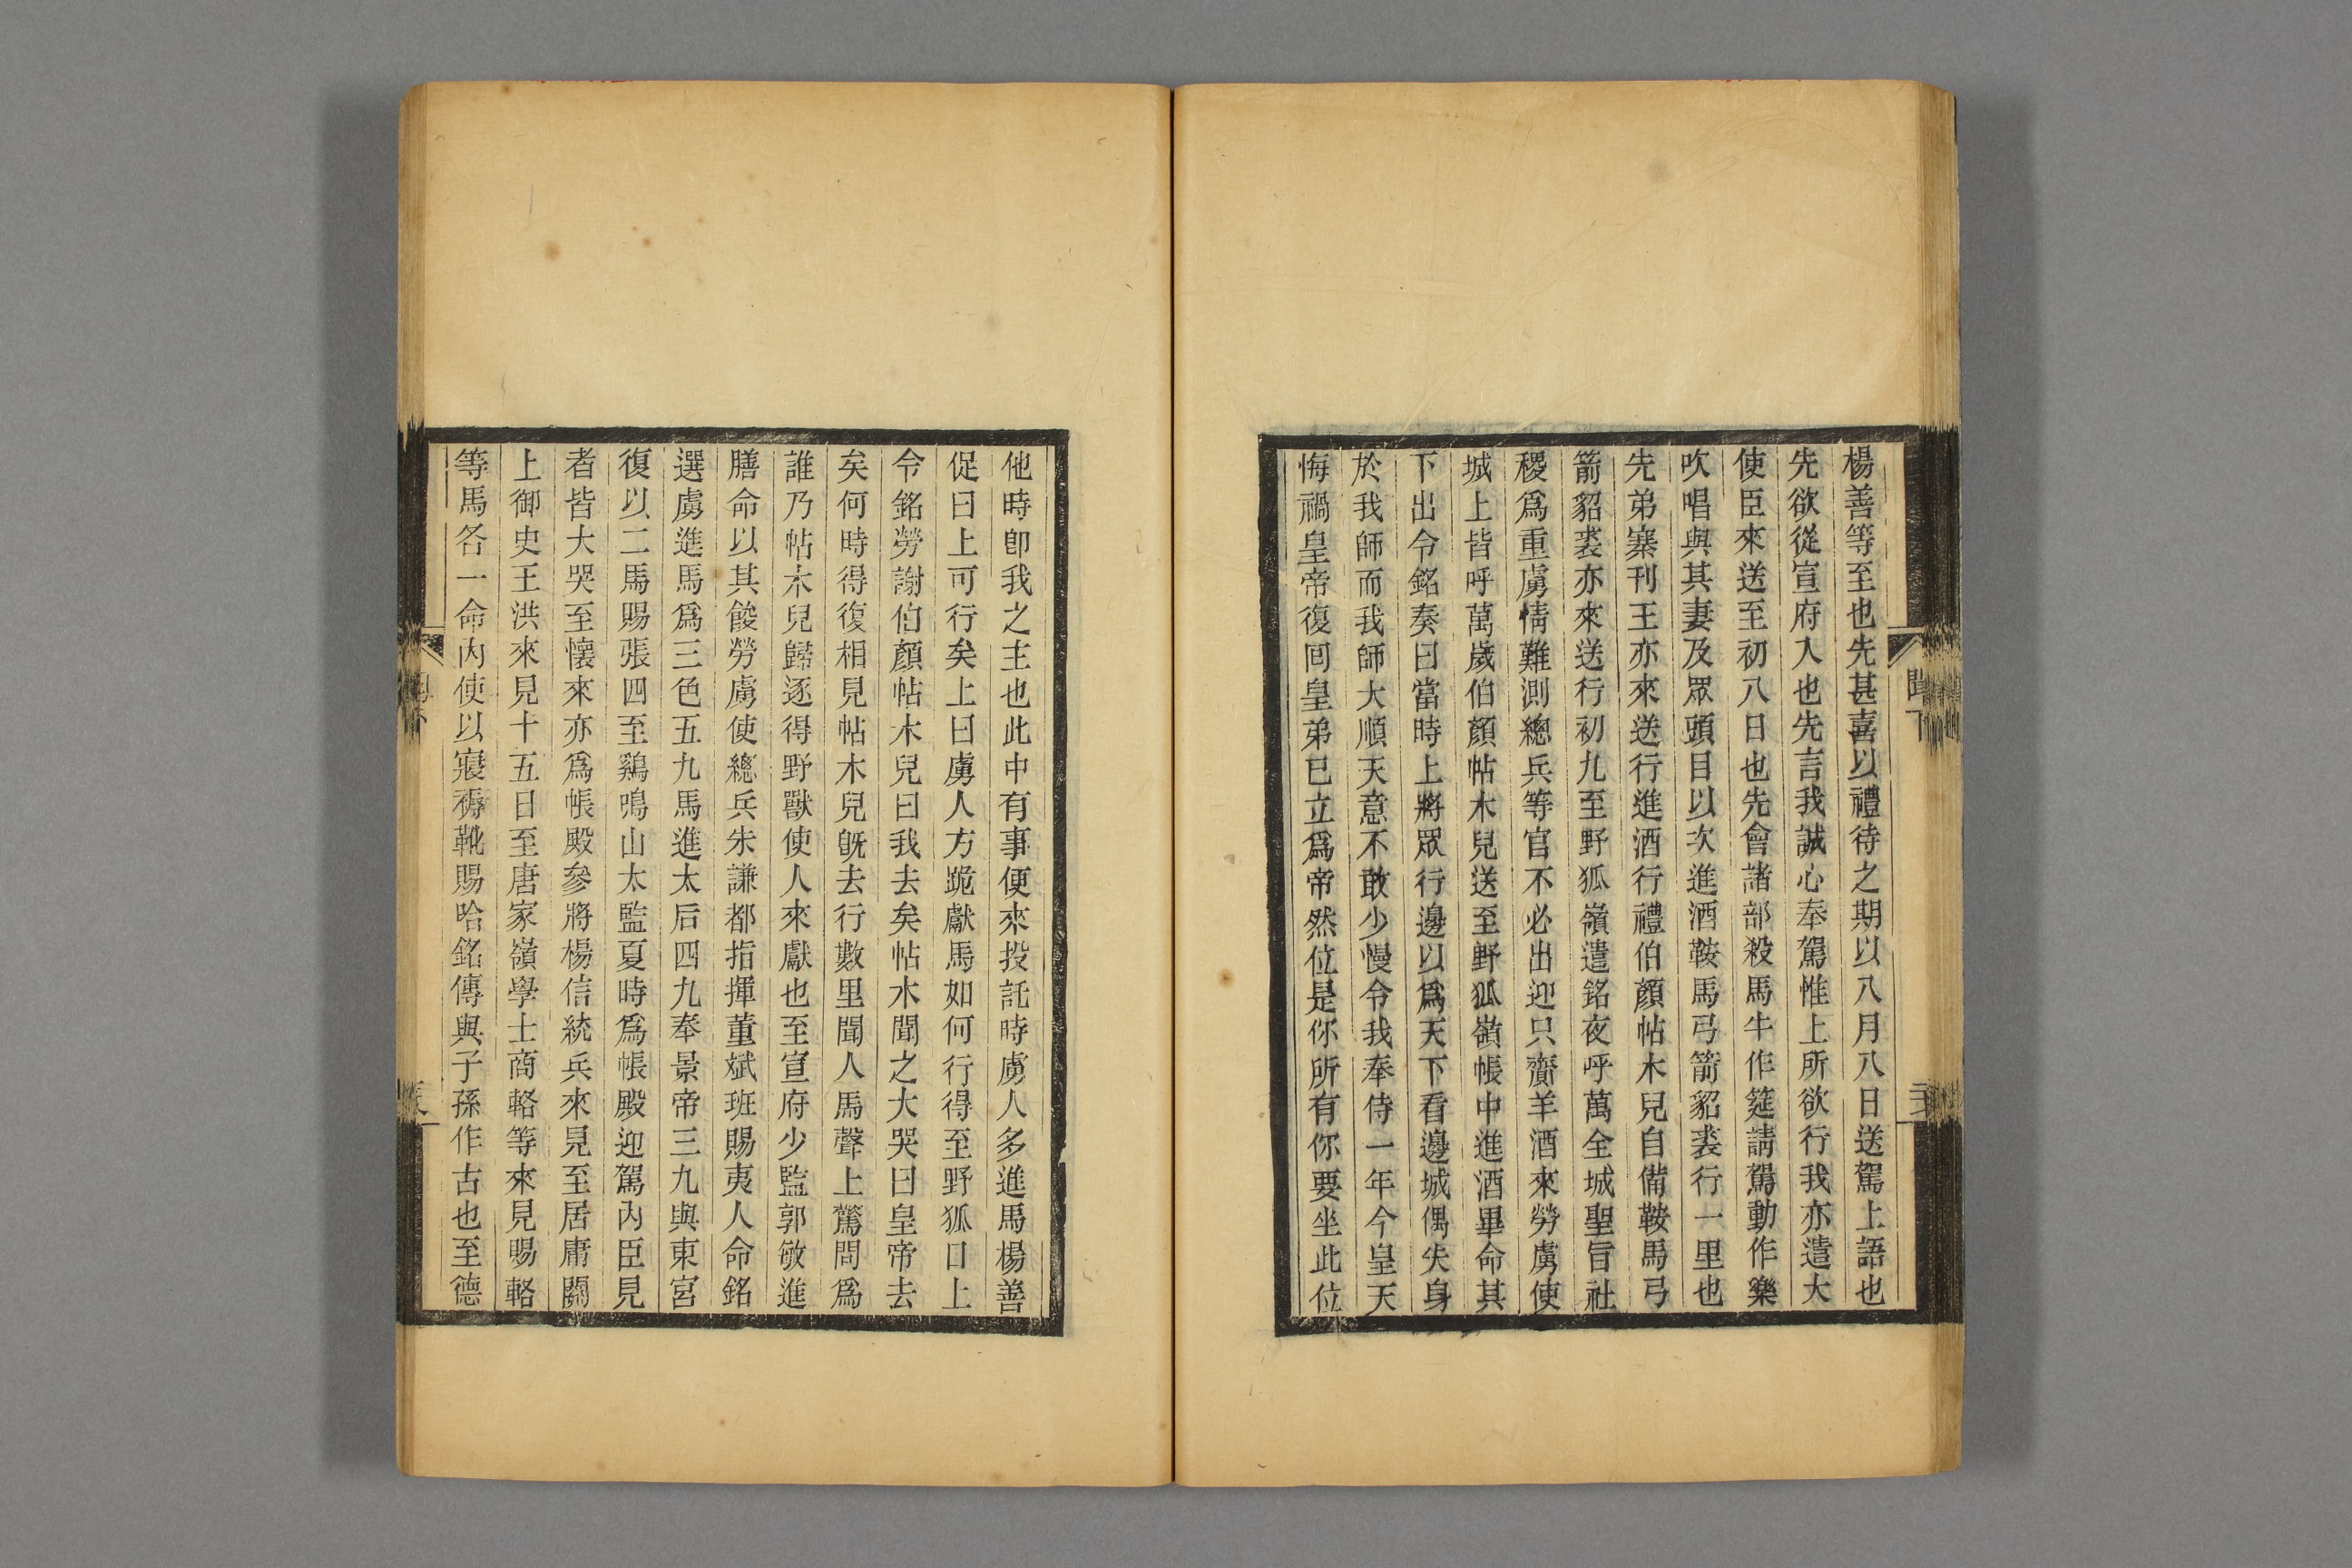 楊善等至也先甚喜以禮待之期以八月八日送駕上語也
先欲從宣府入也先言我誠心奉駕惟上所欲行我亦遣大
使臣來送至初八日也先會諸部殺馬牛作筵請駕動作樂
吹唱與其妻及眾頭目以次進酒鞍馬弓箭貂裘行一里也
先弟寨刊王亦來送行進酒行禮伯顏帖木兒自備鞍馬弓
箭貂裘亦來送行初九至野狐嶺遣銘夜呼萬全城聖旨社
稷爲重虜情難測總兵等官不必出迎只齎羊酒來勞虜使
城上皆呼萬歲伯顏帖木兒送至野狐嶺帳中進酒畢命其
下出令銘奏曰當時上將眾行邊以爲天下看邊城偶失身
於我師而我師大順天意不敢少慢令我奉侍一年今皇天
悔禍皇帝復回皇弟已立爲帝然位是你所有你要坐此位
聞下
他時卽我之主也此中有事便來投託時虜人多進馬楊善
促曰上可行矣上曰虜人方跪獻馬如何行得至野狐口上
令銘勞謝伯顏帖木兒曰我去矣帖木聞之大哭曰皇帝去
矣何時得復相見帖木兒旣去行數里聞人馬聲上驚問爲
誰乃帖木兒歸逐得野獸使人來獻也至宣府少監郭敏進
膳命以其餕勞虜使總兵朱謙都指揮董斌班賜夷人命銘
選虜進馬爲三色五九馬進太后四九奉景帝三九與東宮
復以二馬賜張四至鷄鳴山太監夏時爲帳殿迎駕內臣見
者皆大哭至懷來亦爲帳殿參將楊信統兵來見至居庸關
上御史王洪來見十五日至唐家嶺學士商輅等來見賜輅
等馬各一命內使以寢褥靴賜哈銘傳與子孫作古也至德